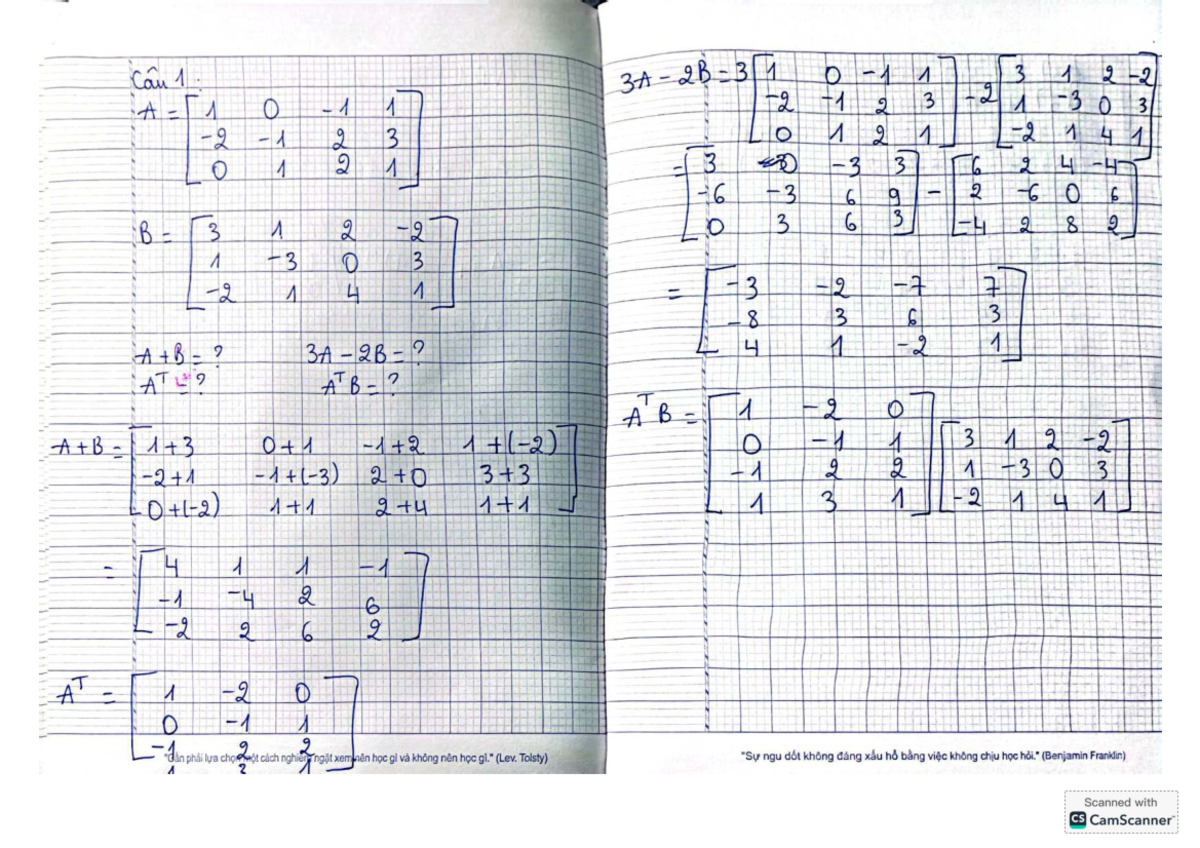 Câu 1:
A = [1 0 -1 1
-2 -1 2 3
0 1 2 1]
B = [3 1 2 -2
1 -3 0 3
-2 1 4 1]
A+B = ? 3A - 2B = ?
A^T = ? A^T B = ?
A+B = [1+3 0+1 -1+2 1+(-2)
-2+1 -1+(-3) 2+0 3+3
0+(-2) 1+1 2+4 1+1]
= [4 1 1 -1
-1 -4 2 6
-2 2 6 2]
A^T = [1 -2 0
0 -1 1
-1 2 2
1 3 1]
"Cần phải lựa chọn một cách nghiêm ngặt xem nên học gì và không nên học gì." (Lev. Tolsty)
3A - 2B = 3 [1 0 -1 1 -2 [3 1 2 -2
-2 -1 2 3 1 -3 0 3
0 1 2 1] -2 1 4 1]
= [3 0 -3 3 - [6 2 4 -4
-6 -3 6 9 2 -6 0 6
0 3 6 3] -4 2 8 2]
= [-3 -2 -7 7
-8 3 6 3
4 1 -2 1]
A^T B = [1 -2 0
0 -1 1 [3 1 2 -2
-1 2 2 1 -3 0 3
1 3 1] -2 1 4 1]
"Sự ngu dốt không đáng xấu hổ bằng việc không chịu học hỏi." (Benjamin Franklin)
Scanned with
CS CamScanner